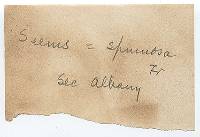 Seems = spinutosa
Fr
Sec Albany